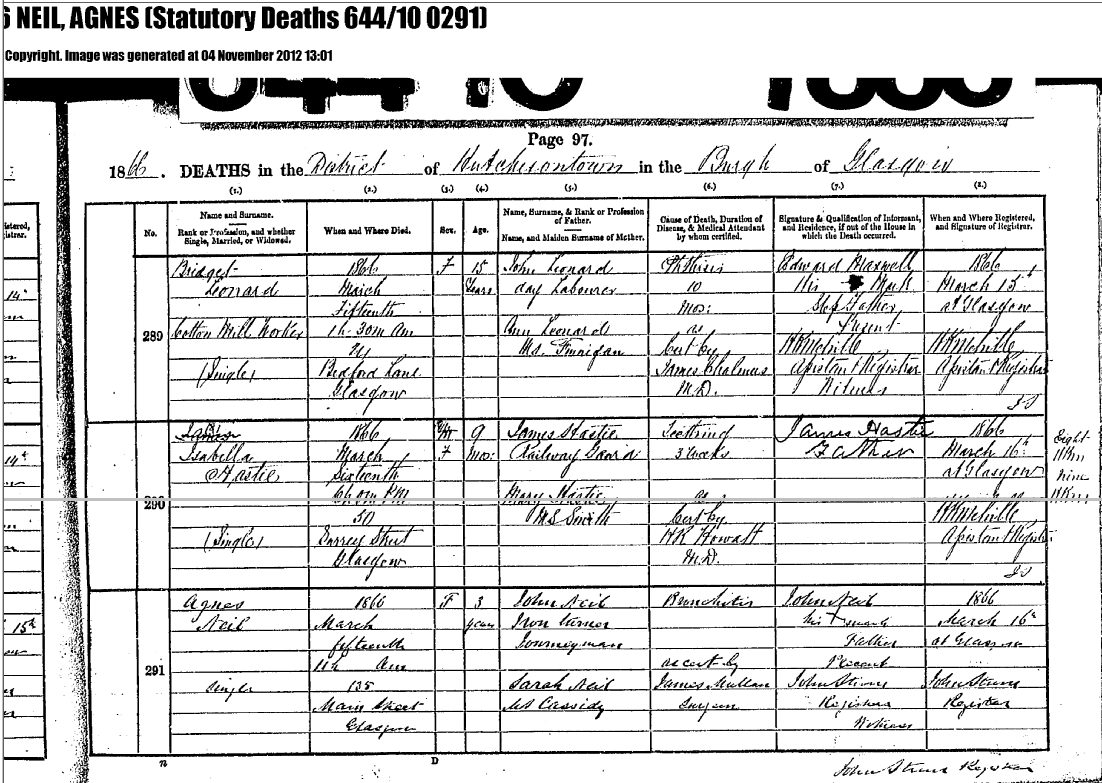 6 NEIL, AGNES (Statutory Deaths 644/10 0291)
Copyright. Image was generated at 04 November 2012 13:01
Page 97.
1866. DEATHS in the District of Hutchesontown in the Burgh of Glasgow
(1.) (2.) (3.) (4.) (5.) (6.) (7.) (8.)
No.
Name and Surname.
Rank or Profession, and whether
Single, Married, or Widowed.
When and Where Died.
Sex.
Age.
Name, Surname, & Rank or Profession
of Father.
Name, and Maiden Surname of Mother.
Cause of Death, Duration of
Disease, & Medical Attendant
by whom certified.
Signature & Qualification of Informant,
and Residence, if out of the House in
which the Death occurred.
When and Where Registered,
and Signature of Registrar.
289
Bridget
Leonard
Cotton Mill Worker
(Single)
1866
March
Fifteenth
1h. 30m Am
Bedford Lane
Glasgow
F
15
Years
John Leonard
day Labourer
Ann Leonard
Ms. Finnigan
Phthisis
10
Mos:
as
Cert by
James Chalmers
M.D.
Edward Maxwell
His Mark
Step Father
Present
Assistant Registrar
Witness
1866
March 15th
at Glasgow
Assistant Registrar
290
Isabella
Hastie
(Single)
1866
March
Sixteenth
50
Surrey Street
Glasgow
F
9
Mos:
James Hastie
Railway Guard
Mary Hastie
MS Smith
Teething
3 weeks
as
Cert by
M.D.
James Hastie
Father
1866
March 16th
at Glasgow
Eight
nine
291
Agnes
Neil
Single
1866
March
fifteenth
11h Am
135
Main Street
Glasgow
F
3
years
John Neil
Iron turner
Journeyman
Sarah Neil
MS Cassidy
Bronchitis
as cert by
James Mullan
Surgeon
John Neil
his X mark
Father
Present
Registrar
Witness
1866
March 16th
at Glasgow
Registrar